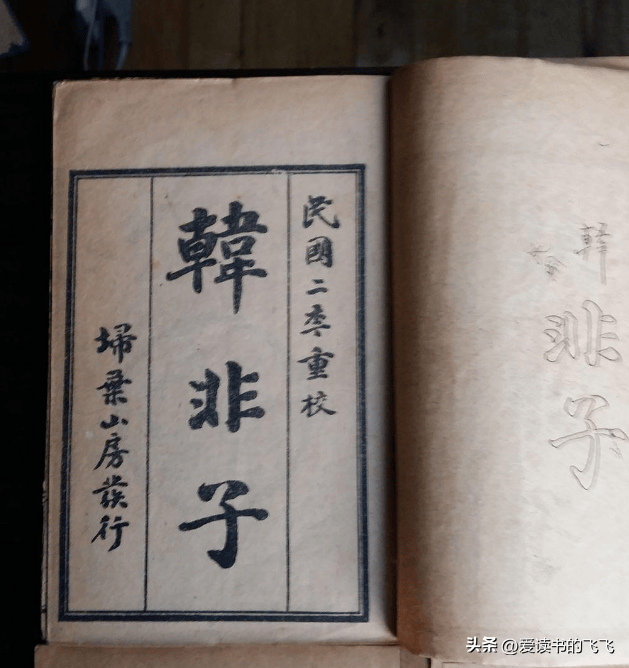 韓非子
民國二秊重校
韓非子
埽葉山房發行
头条 @爱读书的飞飞